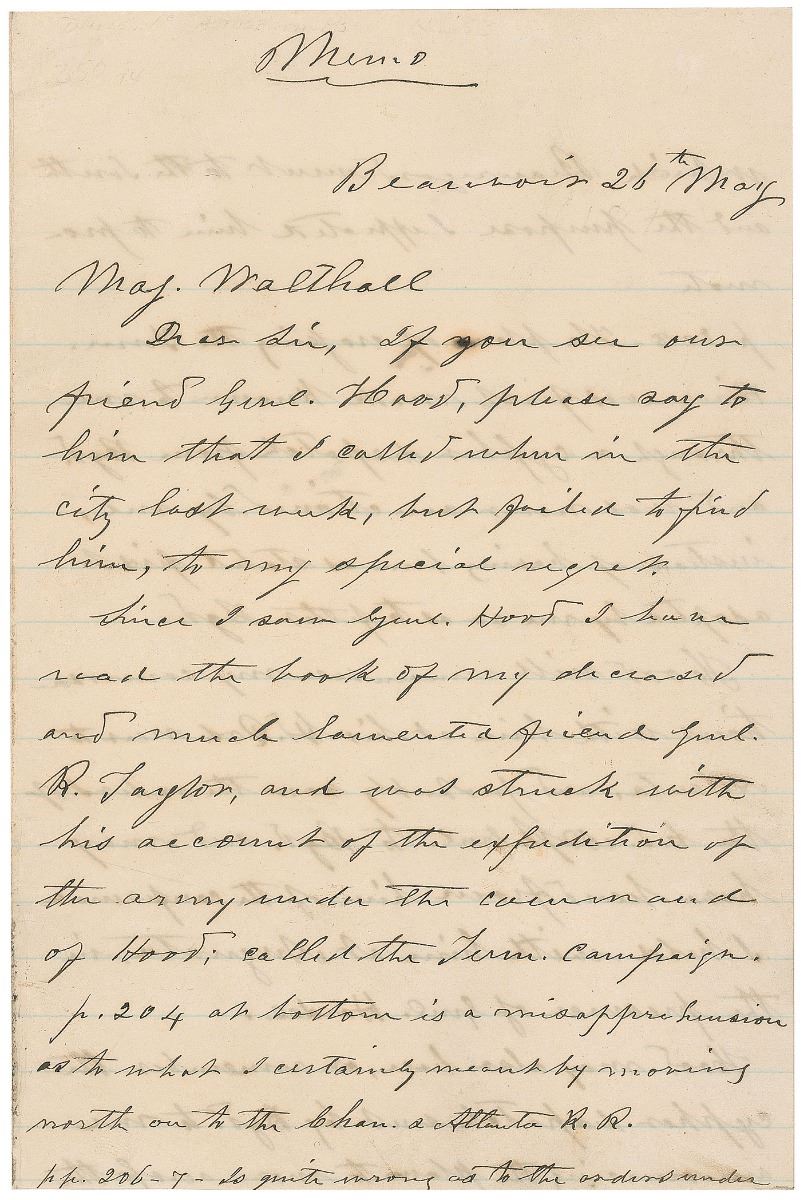 Memo
Beauvoir 26th May
Maj. Walthall
Dear Sir, If you see our
friend Genl. Hood, please say to
him that I called when in the
city last week, but failed to find
him, to my special regret.
Since I saw Genl. Hood I have
read the book of my deceased
and much lamented friend Genl.
R. Taylor, and was struck with
his account of the expedition of
the army under the command
of Hood; called the Tenn. Campaign.
p. 204 at bottom is a misapprehension
as to what I certainly meant by moving
north on to the Chat. & Atlanta R. R.
pp. 206-7- Is quite wrong as to the orders under